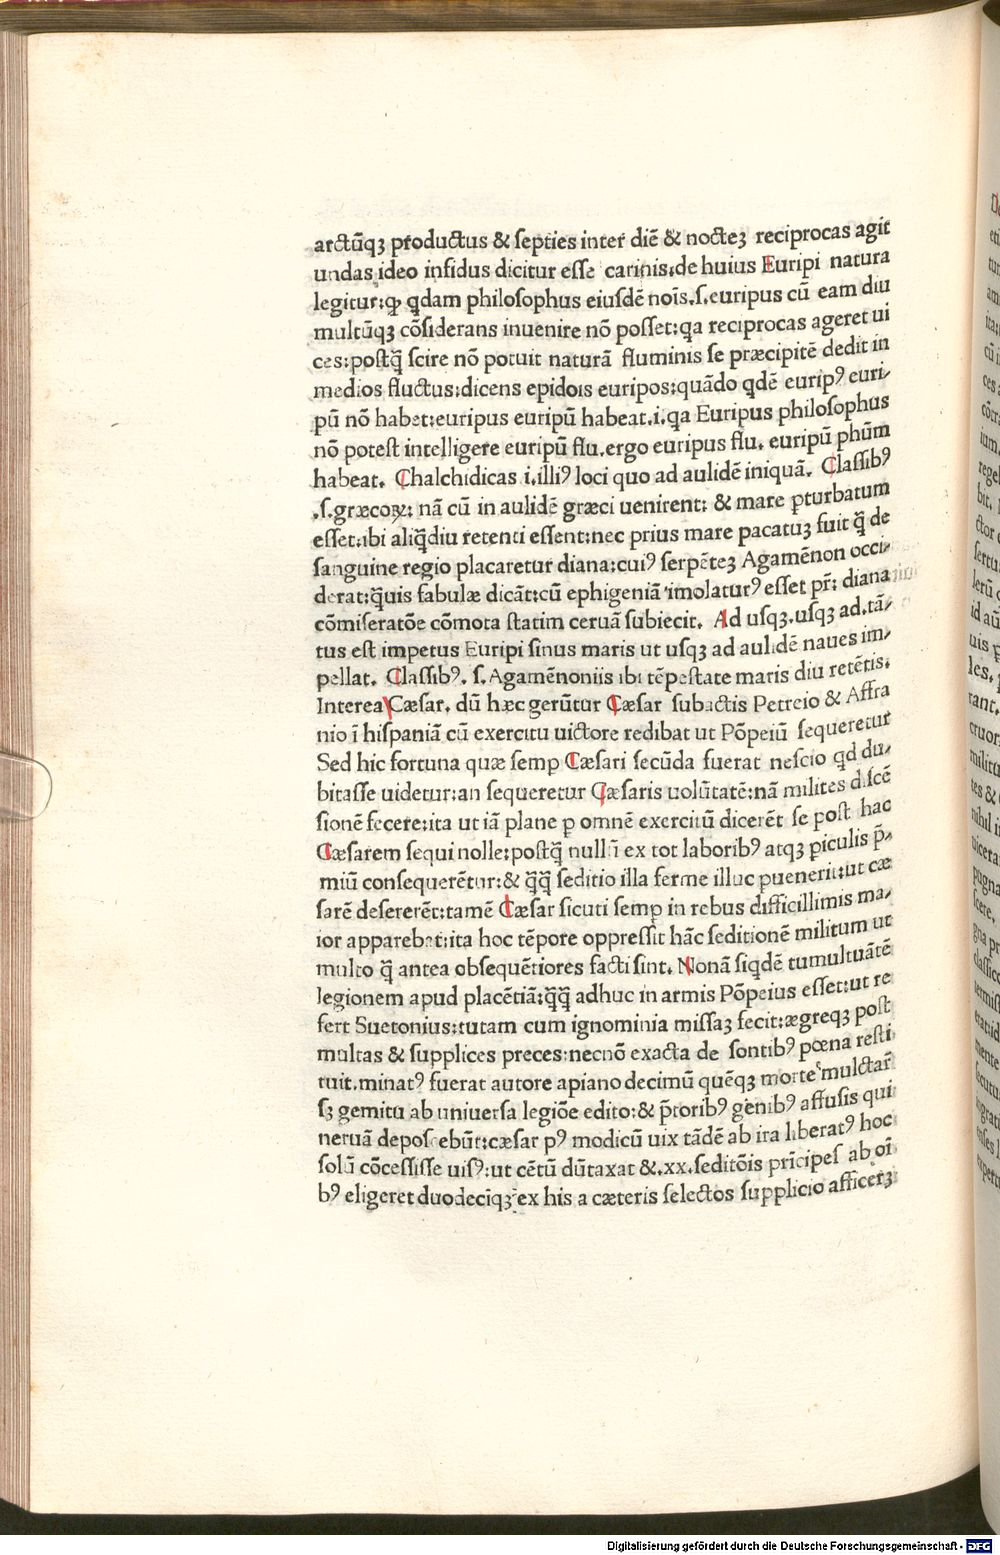 arctũqꝫ productus & septies inter diẽ & nocteꝫ reciprocas agit
undas ideo infidus dicitur esse carinis:de huius Euripi natura
legitur:ꝙ q̃dam philosophus eiusdẽ noĩs.s.euripus cũ eam diu
multũqꝫ cõsiderans inuenire nõ posset:qa reciprocas ageret ui
ces:postq̃ scire nõ potuit naturã fluminis se præcipitẽ dedit in
medios fluctus:dicens epidois euripos:quãdo qdẽ eurip⁹ euri⸗
pũ nõ habet:euripus euripũ habeat.i.qa Euripus philosophus
nõ potest intelligere euripũ flu.ergo euripus flu. euripũ phũm
habeat. Chalchidicas i.illi⁹ loci quo ad aulidẽ iniquã. Classib⁹
.s.græcoꝝ: nã cũ in aulidẽ græci uenirent: & mare ꝑturbatum
esset:ibi aliq̃diu retenti essent:nec prius mare pacatuꝫ fuit q̃ de
sanguine regio placaretur diana:cui⁹ serpẽteꝫ Agamẽnon occi⸗
derat:q̃uis fabulæ dicãt:cũ ephigeniã imolatur⁹ esset pr̃: diana
cõmiseratõe cõmota statim ceruã subiecit. Ad usqꝫ.usqꝫ ad.tã⸗
tus est impetus Euripi sinus maris ut usqꝫ ad aulidẽ naues im⸗
pellat. Classib⁹. s.Agamẽnoniis ibi tẽpestate maris diu retẽtis.
Interea Cæsar. dũ hæc gerũtur Cæsar subactis Petreio & Affra
nio ĩ hispaniã cũ exercitu uictore redibat ut Põpeiũ sequeretur
Sed hic fortuna quæ semꝑ Cæsari secũda fuerat nescio qd du⸗
bitasse uidetur:an sequeretur Cæsaris uolũtatẽ:nã milites discẽ
sionẽ fecere:ita ut iã plane ꝑ omnẽ exercitũ dicerẽt se post hac
Cæsarem sequi nolle:postq̃ nullũ ex tot laborib⁹ atqꝫ ꝑiculis p̃⸗
miũ consequerẽtur:& q̃q̃ seditio illa ferme illuc ꝑuenerit:ut cæ
sarẽ desererẽt:tamẽ Cæsar sicuti semꝑ in rebus difficillimis ma⸗
ior apparebat:ita hoc tẽpore oppressit hãc seditionẽ militum ut
multo q̃ antea obsequẽtiores facti sint. Nonã siqdẽ tumultuãtẽ
legionem apud placẽtiã:q̃q̃ adhuc in armis Põpeius esset:ut re
fert Suetonius:tutam cum ignominia missaꝫ fecit:ægreqꝫ post
multas & supplices preces:necnõ exacta de sontib⁹ pœna resti
tuit.minat⁹ fuerat autore apiano decimũ quẽqꝫ morte mulctar̃
sꝫ gemitu ab uniuersa legiõe edito:& p̃torib⁹ genib⁹ affusis qui
neruã deposcebũt:cæsar p⁹ modicũ uix tãdẽ ab ira liberat⁹ hoc
solũ cõcessisse uis⁹:ut cẽtũ dũtaxat &.xx.seditõis prĩcipes ab oĩ
b⁹ eligeret duodecĩqꝫ ex his a cæteris selectos supplicio afficerꝫ
Digitalisierung gefördert durch die Deutsche Forschungsgemeinschaft - DFG